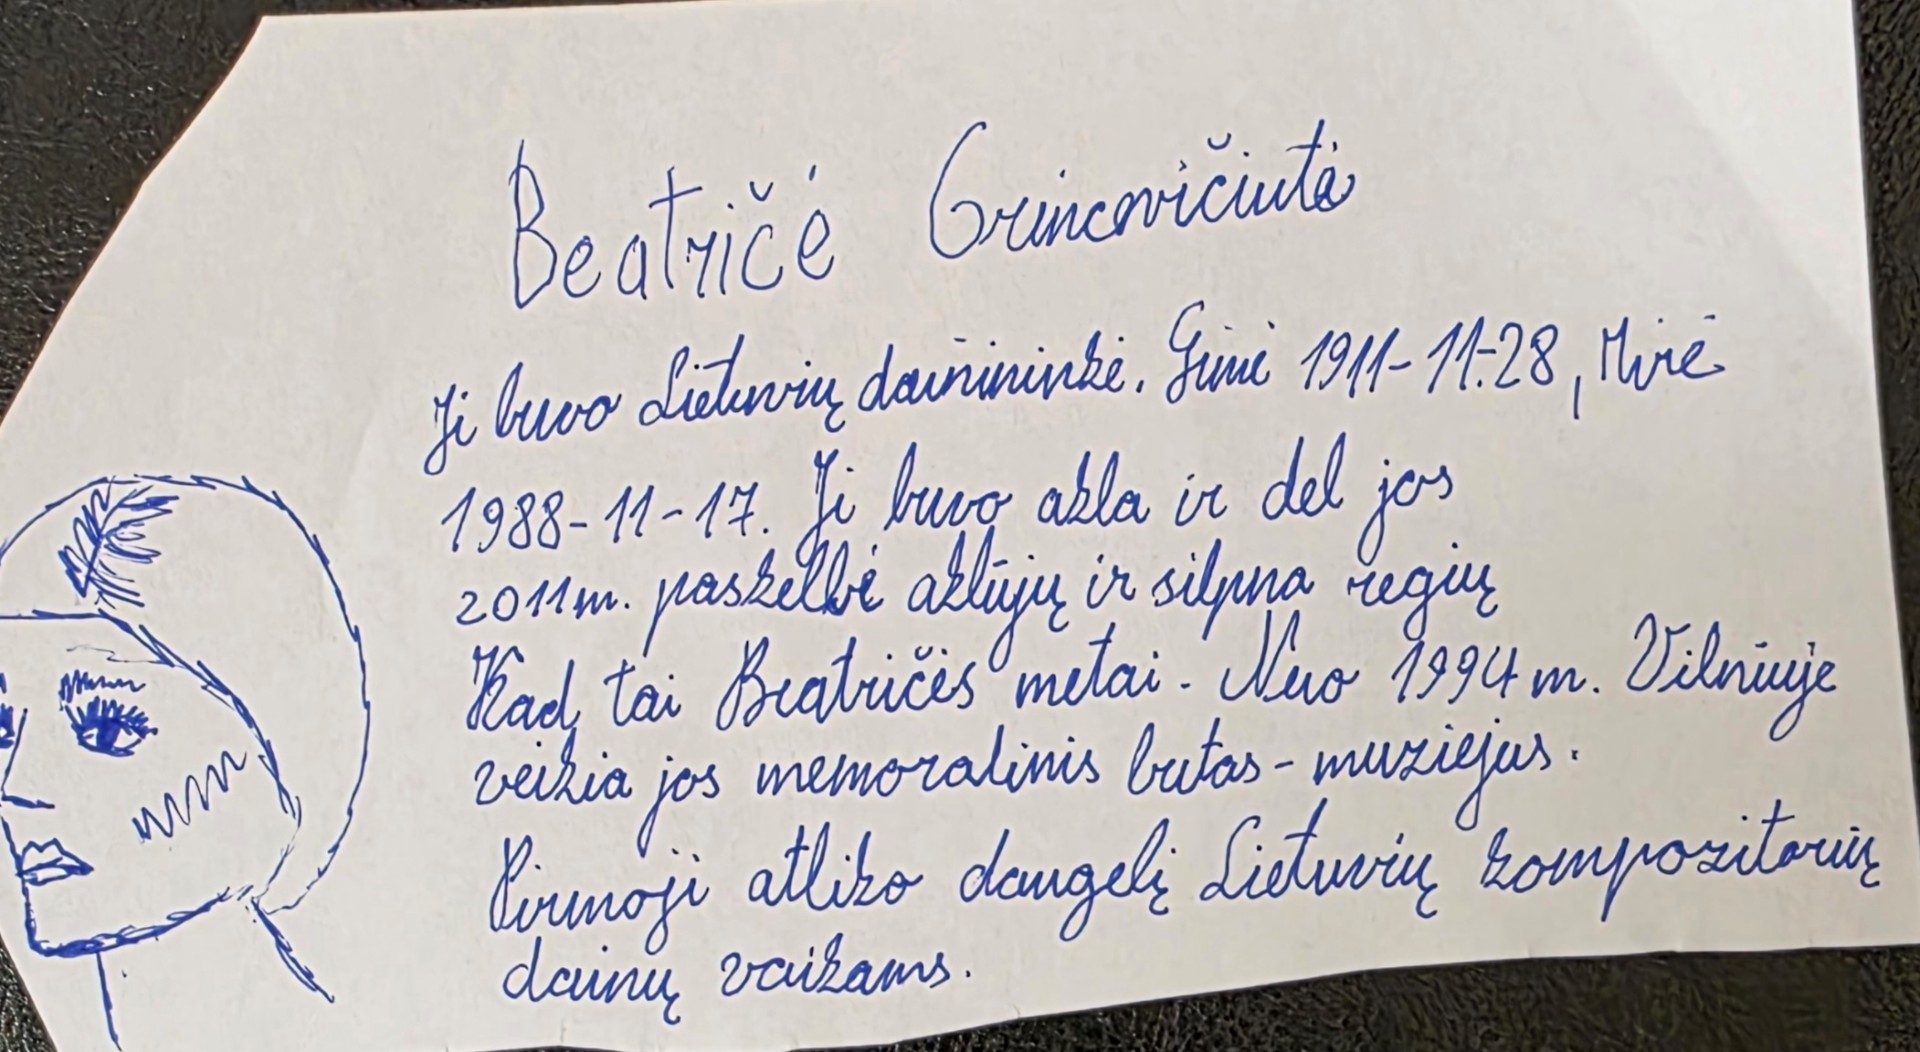 Beatričė Grincevičiutė
Ji buvo Lietuvių dainininkė. Gimė 1911-11-28, Mirė
1988-11-17. Ji buvo akla ir del jos
2011m. paskelbė aklūjų ir silpna regių
Kad tai Beatričės metai. Nuo 1994 m. Vilniuje
veikia jos memoralinis butas-muziejus.
Pirmoji atliko daugelį Lietuvių kompozitorių
dainų vaikams.